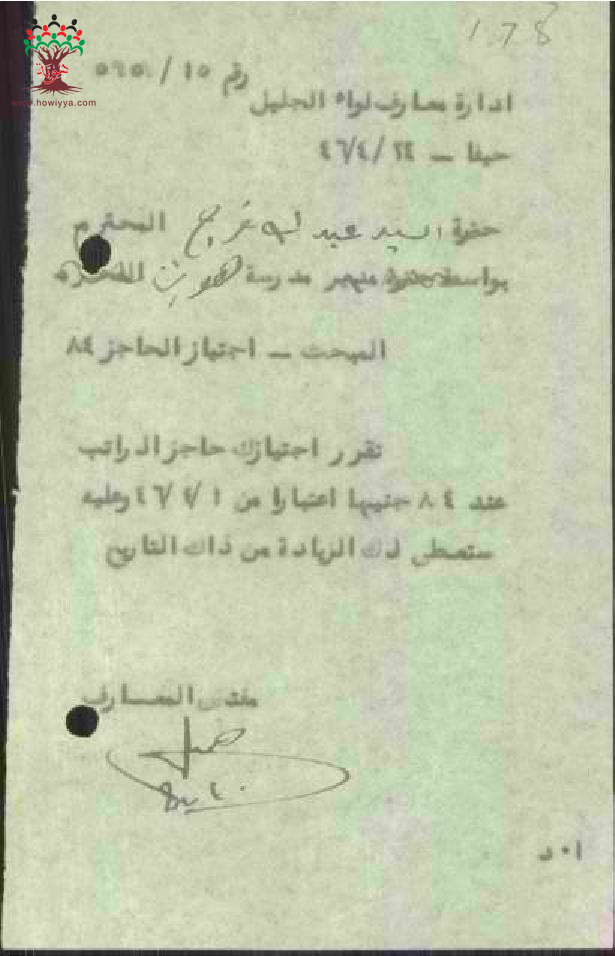 ١٧٨
هوية
www.howiyya.com
رقم ١٥ /
ادارة معارف لواء الجليل
حيفا – ٤٦/٤/٢٤
حضرة السيد عبد الله المحترم
بواسطة حضرة مدير مدرسة المحترم
المبحث – اجتياز الحاجز ٨٤
تقرر اجتيازك حاجز الراتب
عند ٨٤ جنيها اعتبارا من ٤٦/٤/١ وعليه
ستعطى لك الزيادة من ذاك التاريخ
مفتش المعارف
ا٠د